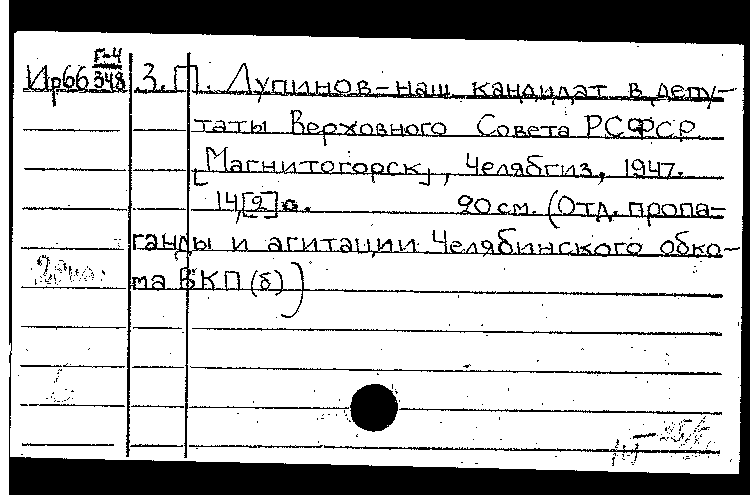 Г-4
Ир66 348 З.П. Лупинов-наш кандидат в депу-
таты Верховного Совета РСФСР
[Магнитогорск], Челябгиз, 1947.
14,[2]с. 20 см. (Отд. пропа-
ганды и агитации Челябинского обко-
ма ВКП(б))